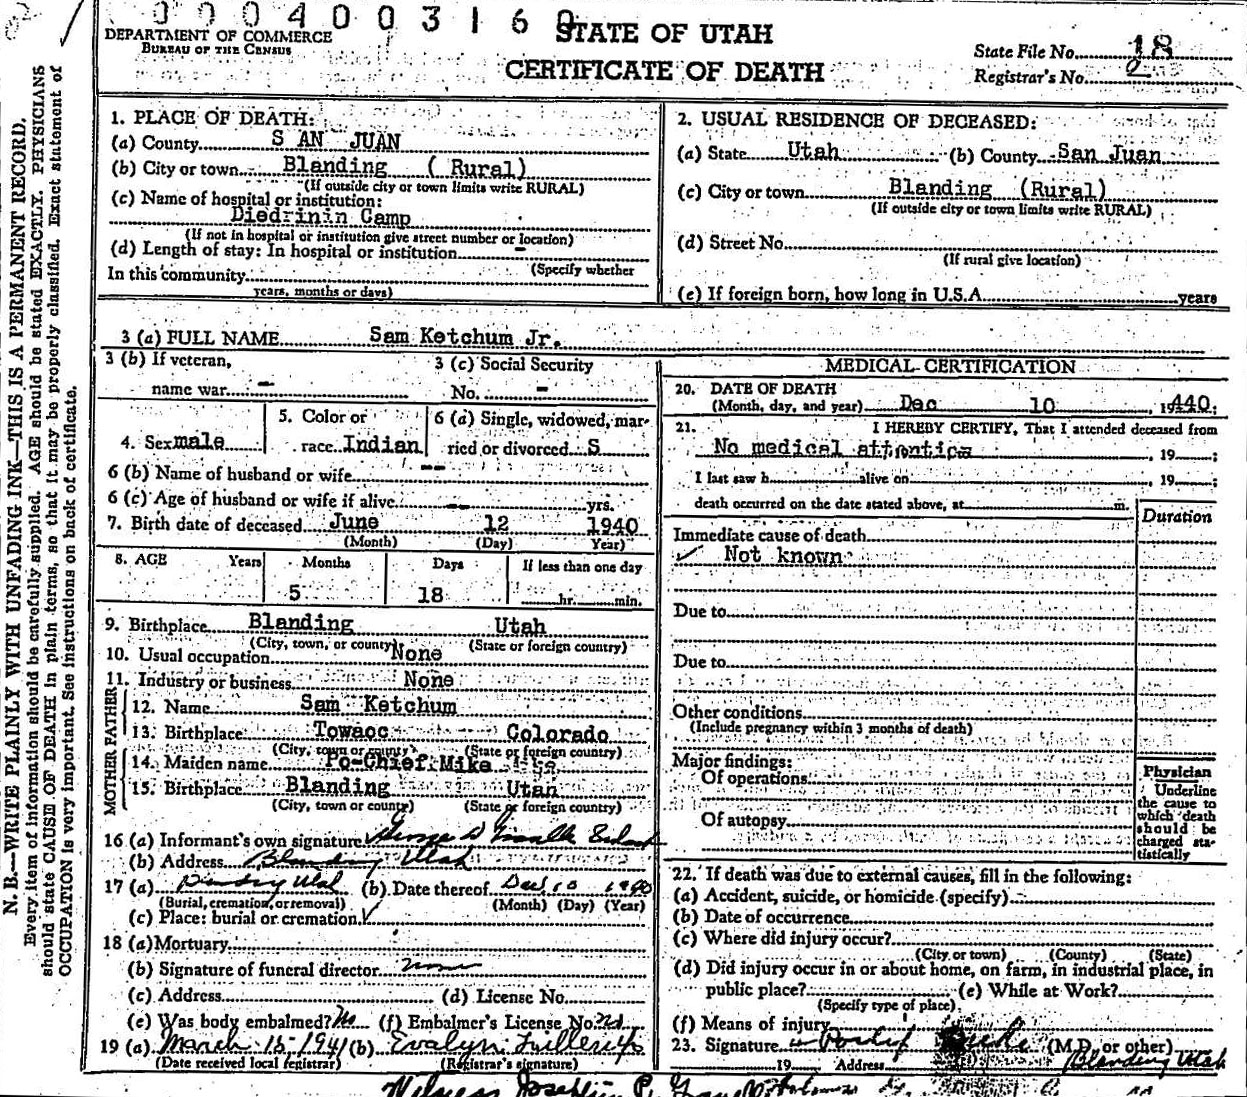 0004003160
DEPARTMENT OF COMMERCE
BUREAU OF THE CENSUS
STATE OF UTAH
CERTIFICATE OF DEATH
State File No. 18
Registrar's No. 2
N. B.—WRITE PLAINLY WITH UNFADING INK—THIS IS A PERMANENT RECORD.
Every item of information should be carefully supplied. AGE should be stated EXACTLY. PHYSICIANS
should state CAUSE OF DEATH in plain terms, so that it may be properly classified. Exact statement of
OCCUPATION is very important. See instructions on back of certificate.
1. PLACE OF DEATH:
(a) County S AN JUAN
(b) City or town Blanding ( Rural)
(If outside city or town limits write RURAL)
(c) Name of hospital or institution:
Diedrinin Camp
(If not in hospital or institution give street number or location)
(d) Length of stay: In hospital or institution -
(Specify whether
In this community
years, months or days)
2. USUAL RESIDENCE OF DECEASED:
(a) State Utah (b) County San Juan
(c) City or town Blanding (Rural)
(If outside city or town limits write RURAL)
(d) Street No.
(If rural give location)
(e) If foreign born, how long in U.S.A. years
3 (a) FULL NAME Sam Ketchum Jr.
3 (b) If veteran,
name war -
3 (c) Social Security
No. -
4. Sex male
5. Color or
race Indian
6 (a) Single, widowed, mar-
ried or divorced S
6 (b) Name of husband or wife --
6 (c) Age of husband or wife if alive -- yrs.
7. Birth date of deceased June 12 1940
(Month) (Day) Year)
8. AGE Years Months Days If less than one day
5 18 hr. min.
9. Birthplace Blanding Utah
(City, town, or county) (State or foreign country)
10. Usual occupation None
11. Industry or business None
FATHER
12. Name Sam Ketchum
13. Birthplace Towaoc Colorado
(City, town or county) (State or foreign country)
MOTHER
14. Maiden name Po-Chief Mike
15. Birthplace Blanding Utah
(City, town or county) (State or foreign country)
16 (a) Informant's own signature George
(b) Address Blanding Utah
17 (a) Utah (b) Date thereof Dec 10 1940
(Burial, cremation, or removal) (Month) (Day) (Year)
(c) Place: burial or cremation ✓
18 (a) Mortuary
(b) Signature of funeral director none
(c) Address (d) License No.
(e) Was body embalmed? No (f) Embalmer's License No. no
19 (a) March 15-1941 (b) Evalyn
(Date received local registrar) (Registrar's signature)
MEDICAL CERTIFICATION
20. DATE OF DEATH
(Month, day, and year) Dec 10, 19440;
21. I HEREBY CERTIFY, That I attended deceased from
No medical attention, 19 ;
I last saw h alive on , 19 ;
death occurred on the date stated above, at m.
Duration
Immediate cause of death
✓ Not known
Due to
Due to
Other conditions
(Include pregnancy within 3 months of death)
Major findings:
Of operations
Of autopsy
Physician
Underline
the cause to
which death
should be
charged sta-
tistically
22. If death was due to external causes, fill in the following:
(a) Accident, suicide, or homicide (specify)
(b) Date of occurrence
(c) Where did injury occur?
(City or town) (County) (State)
(d) Did injury occur in or about home, on farm, in industrial place, in
public place? (e) While at Work?
(Specify type of place)
(f) Means of injury
23. Signature (M.D. or other)
19 Address Blanding Utah
Witness P.